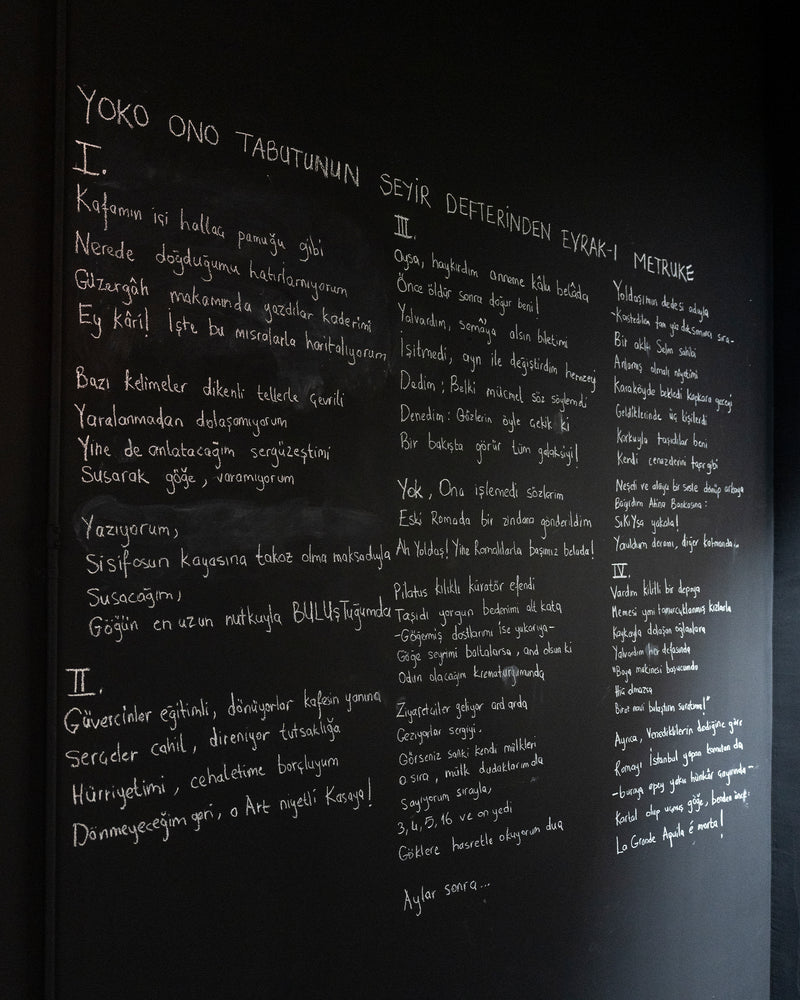 YOKO ONO TABUTUNUN SEYİR DEFTERİNDEN EVRAK-I METRUKE
I.
Kafamın içi hallaç pamuğu gibi
Nerede doğduğumu hatırlamıyorum
Güzergâh makamında yazdılar kaderimi
Ey kâri! İşte bu mısralarla haritalıyorum
Bazı kelimeler dikenli tellerle çevrili
Yaralanmadan dolaşamıyorum
Yine de anlatacağım sergüzeştimi
Susarak göğe, varamıyorum
Yazıyorum,
Sisifosun kayasına takoz olma maksadıyla
Susacağım,
Göğün en uzun nutkuyla BULUŞTuğumda
II.
Güvercinler eğitimli, dönüyorlar kafesin yanına
Serçeler cahil, direniyor tutsaklığa
Hürriyetimi, cehaletime borçluyum
Dönmeyeceğim geri, o Art niyetli Kasaya!
III.
Oysa, haykırdım anneme kâlu belâda
Önce öldür sonra doğur beni!
Yalvardım, semâya alsın biletimi
İşitmedi, ayn ile değiştirdim hemzeyi
Dedim; Belki mücmel söz söylemdi
Denedim: Gözlerin öyle çekik ki
Bir bakışta görür tüm galaksiyi!
Yok, Ona işlemedi sözlerim
Eski Romada bir zindana gönderildim
Ah Yoldaş! Yine Romalılarla başımız belada!
Pilatus kılıklı küratör efendi
Taşıdı yorgun bedenimi alt kata
-Göğermiş dostlarımı ise yukarıya-
Göğe seyrimi baltalarsa, and olsun ki
Odun olacağım krematuryumunda
Ziyaretçiler geliyor ard arda
Geziyorlar sergiyi.
Görseniz sanki kendi mülkleri
O sıra, mülk dudaklarımda
Sayıyorum sırayla,
3,4,5,16 ve on yedi
Göklere hasretle okuyorum dua
Aylar sonra...
Yoldaşımın dedesi adıyla
-Kastedilen tam yüz doksanıncı sıra-
Bir aklı Selim sahibi
Anlamış olmalı niyetimi
Karaköyde bekledi kapkara geceyi
Geldiklerinde üç kişilerdi
Korkuyla taşıdılar beni
Kendi cenazelerini taşır gibi
Neşeli ve alaycı bir sesle dönüp arkaya
Bağırdım Ahina Bankasına:
SıKıYsa yakala!
Yazıldım devamı, diğer katmanda...
IV.
Vardım kilitli bir depoya
Memesi yeni tomurcuklanmış kızlarla
Kaykayla dolaşan oğlanlara
Yalvardım her defasında
"Boya makinesi başucumda
Hiç olmazsa
Biraz mavi bulaştırın suratıma!"
Ayrıca, Venediklilerin dediğine göre
Romayı İstanbul yapan komutan da
-buraya epey yakın hünkâr çayırında-
Kartal olup uçmuş göğe, benden önce:
La Grande Aquila é morta!